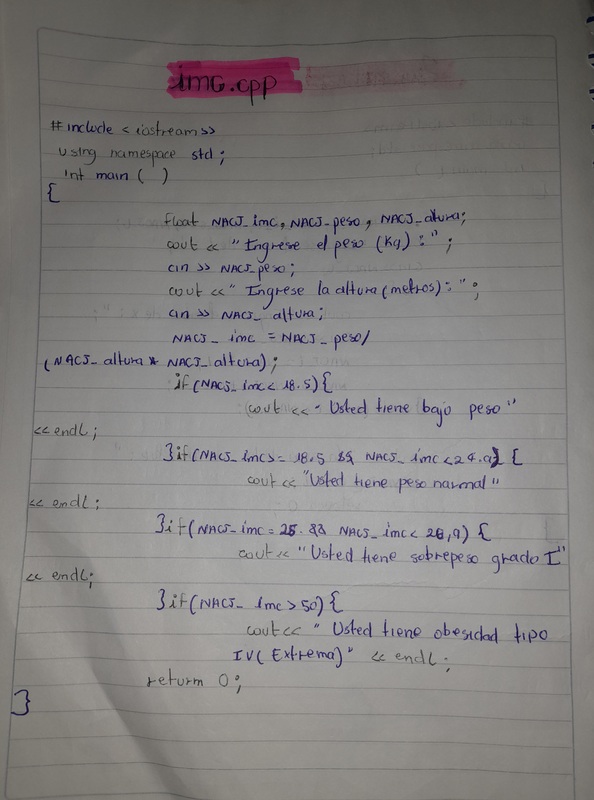 img.cpp
#include <iostream>>
using namespace std;
int main ( )
{
float NACJ_imc, NACJ_peso, NACJ_altura;
cout << "Ingrese el peso (Kg) : ";
cin >> NACJ_peso;
cout << " Ingrese la altura (metros) : ";
cin >> NACJ_ altura;
NACJ_ imc = NACJ_peso/
(NACJ_altura * NACJ_altura);
if (NACJ_ imc < 18.5) {
cout << " Usted tiene bajo peso "
<< endl;
}if (NACJ_ imc >= 18.5 && NACJ_ imc <24.9) {
cout << "Usted tiene peso normal"
<< endl;
}if (NACJ_imc = 25. && NACJ_ imc < 26,9) {
cout << " Usted tiene sobrepeso grado I"
<< endl;
}if (NACJ_ imc > 50) {
cout << " Usted tiene obesidad tipo
IV (Extrema)" << endl;
return 0;
}